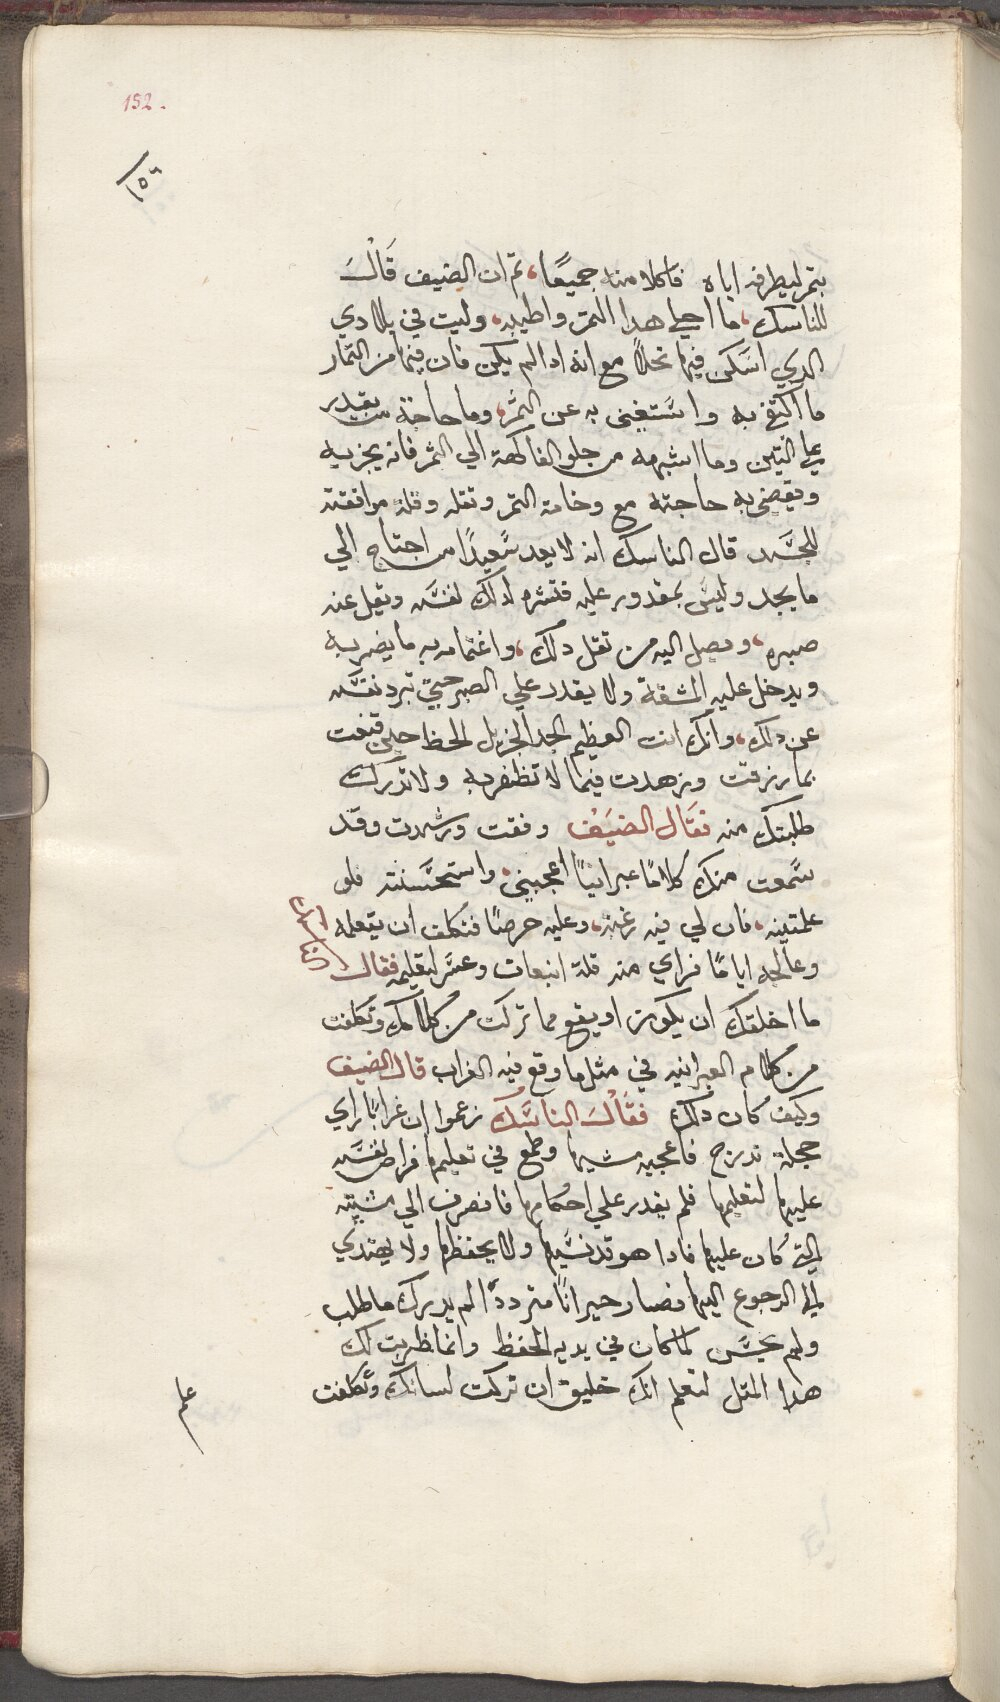 152.
١٥٢
بتمر ليطرفه اياه فاكلا منه جميعًا، تم ان الضيف قَالَ
للناسك، ما احلي هدا التمر واطيبه، وليت في بلادي
الدي اسَكن فيها نخلاً مع انه ادا لم يكن فان فيها من التمار
ما اكتفي به واسَتغني به عن التمر، وما حاجة من يقدر
علي التين وما اشبهه من حلو الفاكهة الي التمر فانه يجزيه
ويقضي به حاجته مع وخامة التمر وتقله وقلة موافقته
للجسَد قال الناسك انه لا يعد سَعيدًا من احتاج الي
ما يجد وليسَ بمقدور عليه فتشره لدلك نفسَه ويقل عنه
صبره، ويصل اليه من تقل دلك، واغتمامه به ما يضر به
ويدخل عليه المشقة ولا يقدر علي الصبر حتي تبرد نفسَه
عن دلك، وانك انت العظيم الجد الجزيل الحظ حين قنعت
بما رزقت وزهدت فيما لا تظفر به ولا تدرك
طلبتك منه فقَال الضيَف وفقت ورشدت وقد
سَمعت منك كلامًا عبرانيًا اعجبني، واستحسَنته فلو
علمتنيه، فان لي فيه رغبة، وعليه حرصًا فتكلف ان يتعلمه
وعالجه ايامًا فراي منه قلة انبعات وعسَر لتعليمه فقال
ما اخلقك ان يكون او يقع مما تركت من كلامك وتكلفت
من كلام العبرانيه في مثل ما وقع فيه الغراب قال الضيف
وكيف كان دلك فقَالَ الناسَك زعموا ان غرابًا راي
حجلة تدرج فاعجبه مشيها وطمع في تعليمها فراض نفسَه
عليها لتعليمها فلم يقدر علي احكامها فانصرف الي مشيته
التي كان عليها فادا هو قد نسَيها ولا يحفظها ولا يهتدي
الي الرجوع اليها فصار حيرانًا مترددًا لم يدرك ما طلب
ولم يحسَن لما كان في يديه الحفظ وانما ظربت لك
هدا المتل لتعلم انك خليق ان تركت لسانك وتكلفت
علم